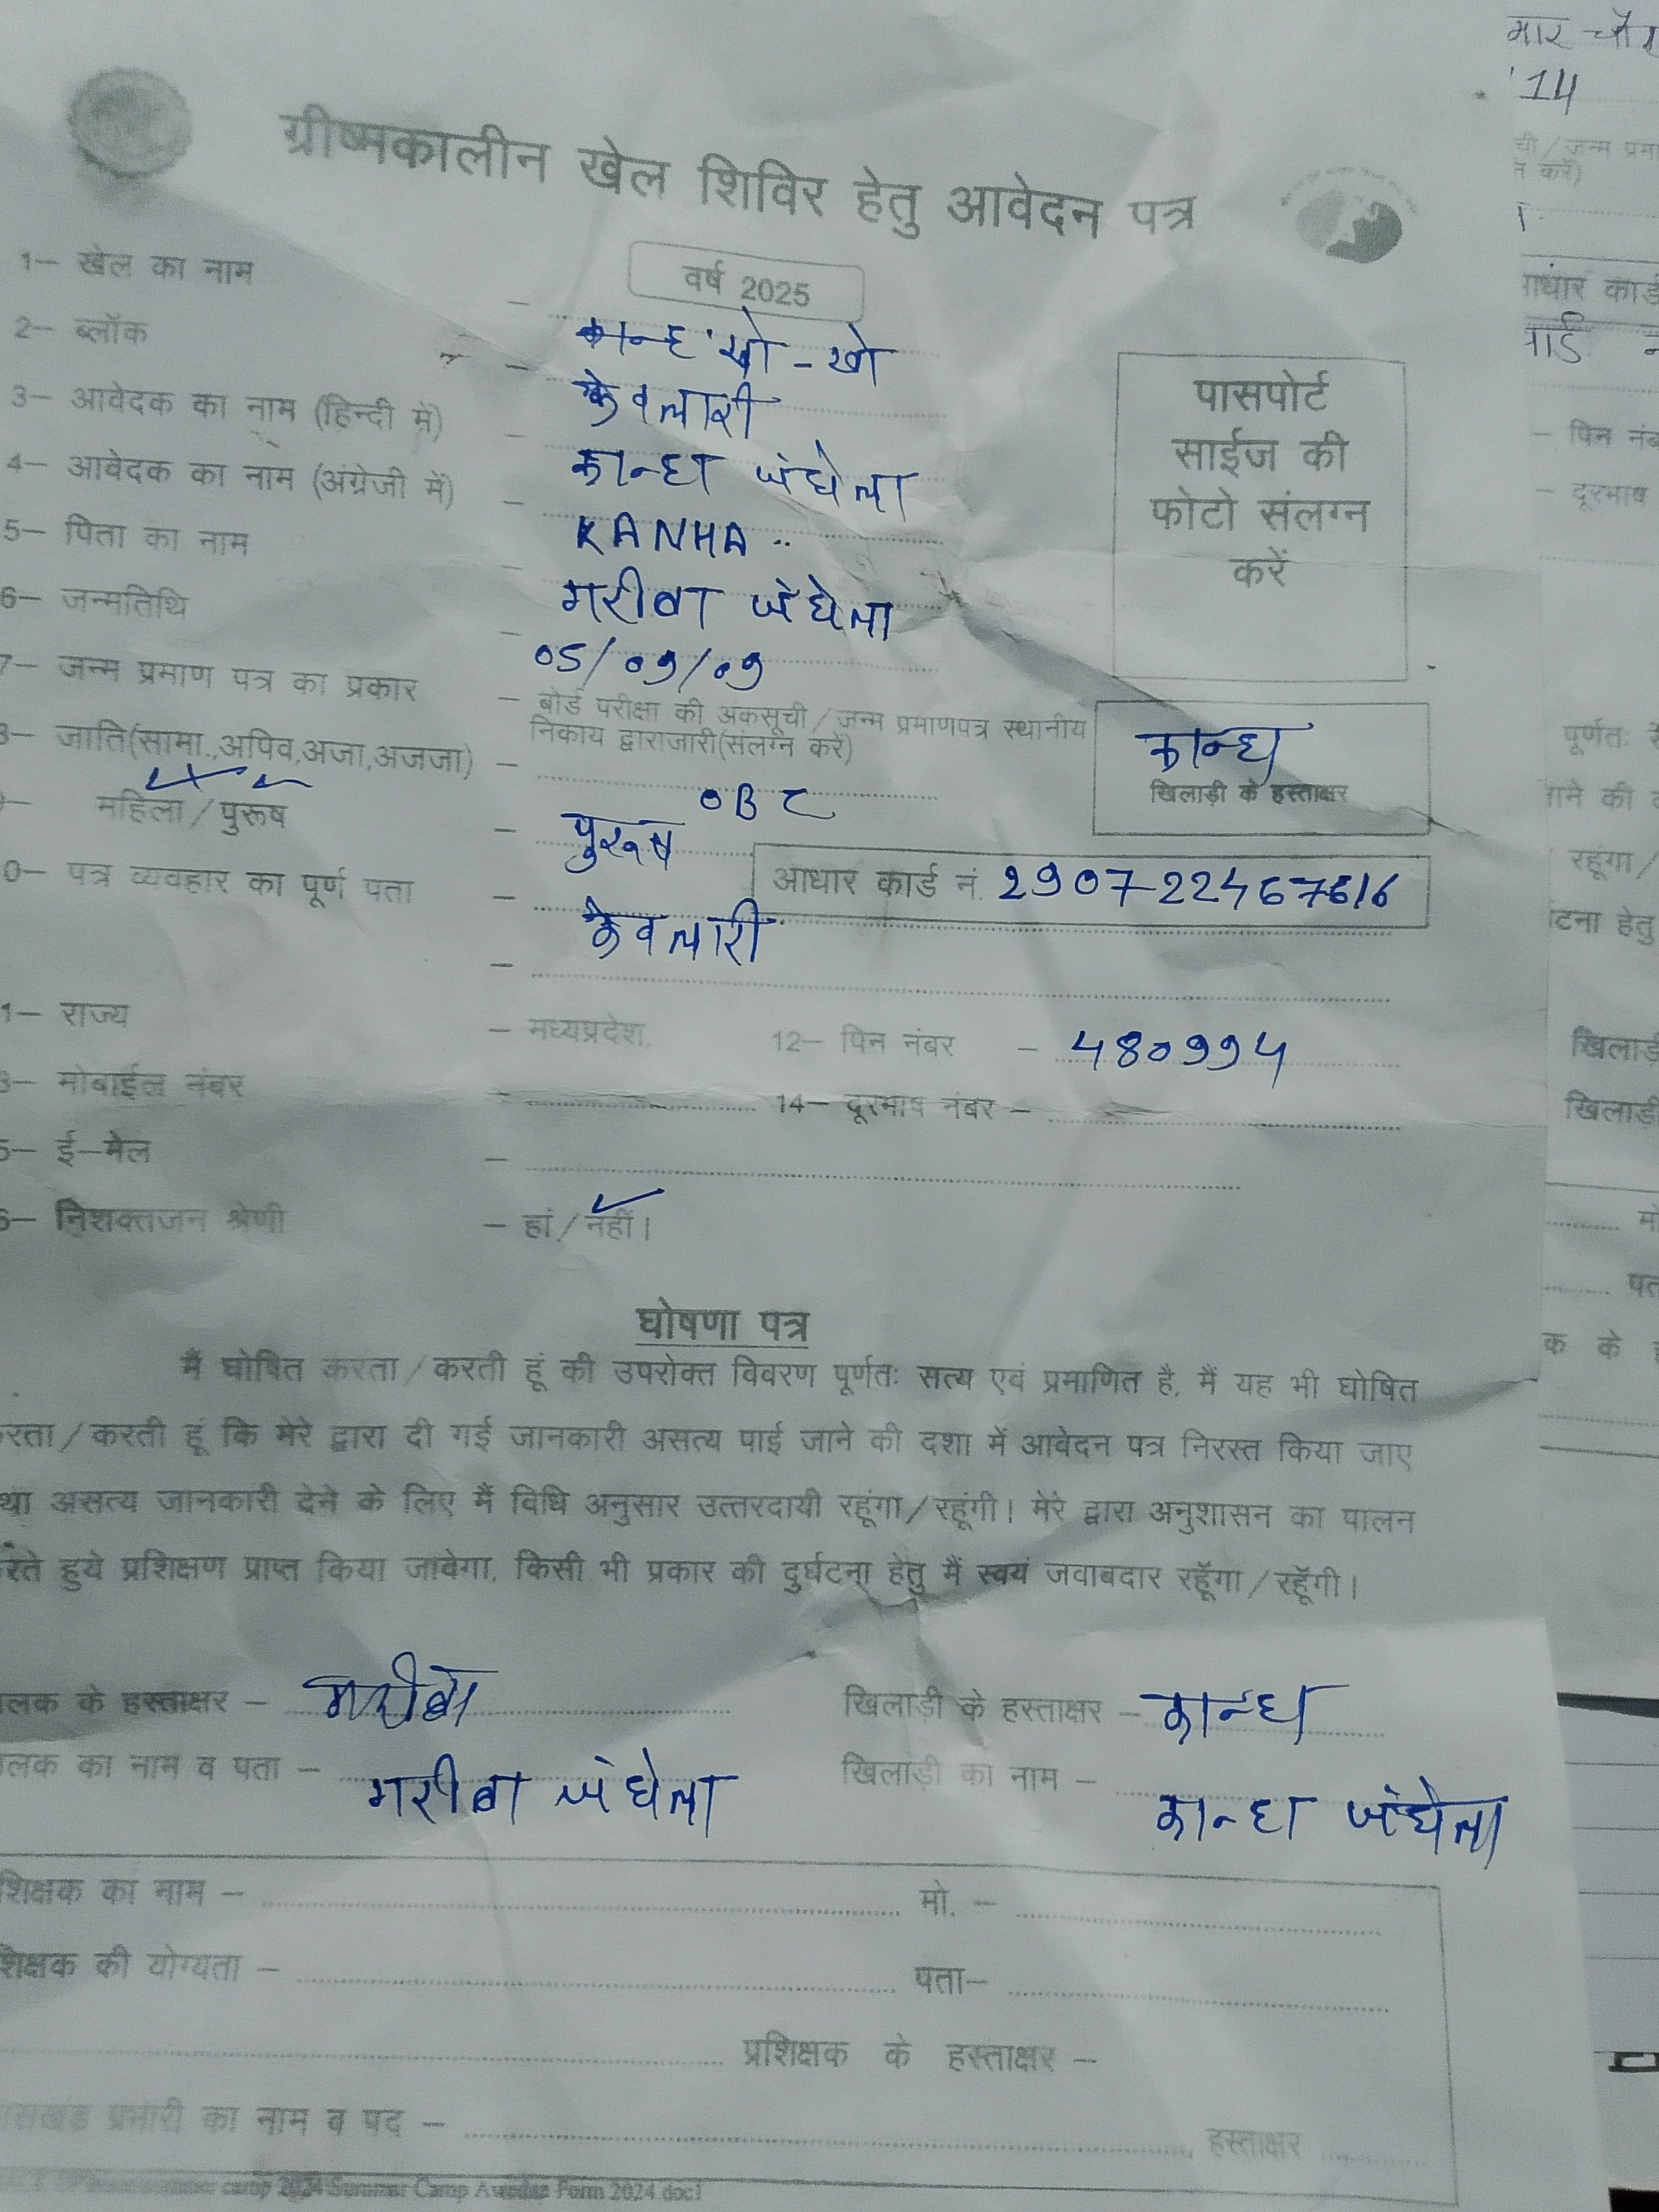 ग्रीष्मकालीन खेल शिविर हेतु आवेदन पत्र
वर्ष 2025
1– खेल का नाम – खो - खो
2– ब्लॉक – केवलारी
3– आवेदक का नाम (हिन्दी में) – कान्हा जंघेला
4– आवेदक का नाम (अंग्रेजी में) – KANHA ..
5– पिता का नाम – गरीबा जंघेला
6– जन्मतिथि – 05/09/09
7– जन्म प्रमाण पत्र का प्रकार – बोर्ड परीक्षा की अंकसूची/जन्म प्रमाणपत्र स्थानीय
निकाय द्वाराजारी(संलग्न करें)
पासपोर्ट
साईज की
फोटो संलग्न
करें
कान्हा
खिलाड़ी के हस्ताक्षर
8– जाति(सामा.,अपिव,अजा,अजजा) – OBC
– महिला/पुरूष – पुरूष
आधार कार्ड नं. 290722467616
0– पत्र व्यवहार का पूर्ण पता – केवलारी
–
1– राज्य – मध्यप्रदेश. 12– पिन नंबर – 480994
3– मोबाईल नंबर – 14– दूरभाष नंबर –
5– ई–मेल –
6– निशक्तजन श्रेणी – हां/नहीं।
घोषणा पत्र
मैं घोषित करता/करती हूं की उपरोक्त विवरण पूर्णतः सत्य एवं प्रमाणित है, मैं यह भी घोषित
रता/करती हूं कि मेरे द्वारा दी गई जानकारी असत्य पाई जाने की दशा में आवेदन पत्र निरस्त किया जाए
था असत्य जानकारी देने के लिए मैं विधि अनुसार उत्तरदायी रहूंगा/रहूंगी। मेरे द्वारा अनुशासन का पालन
रते हुये प्रशिक्षण प्राप्त किया जावेगा, किसी भी प्रकार की दुर्घटना हेतु मैं स्वयं जवाबदार रहूँगा/रहूँगी।
लक के हस्ताक्षर – गरीबा खिलाड़ी के हस्ताक्षर – कान्हा
लक का नाम व पता – गरीबा जंघेला खिलाड़ी का नाम – कान्हा जंघेला
शिक्षक का नाम – मो. –
शिक्षक की योग्यता – पता–
प्रशिक्षक के हस्ताक्षर –
प्रभारी का नाम व पद – हस्ताक्षर
camp 2024 Summer Camp Form 2024.doc1
'14
आधार कार्ड
– पिन
– दूरभाष
पूर्णतः
रहूंगा/
टना हेतु
खिलाड़ी
खिलाड़ी
क के